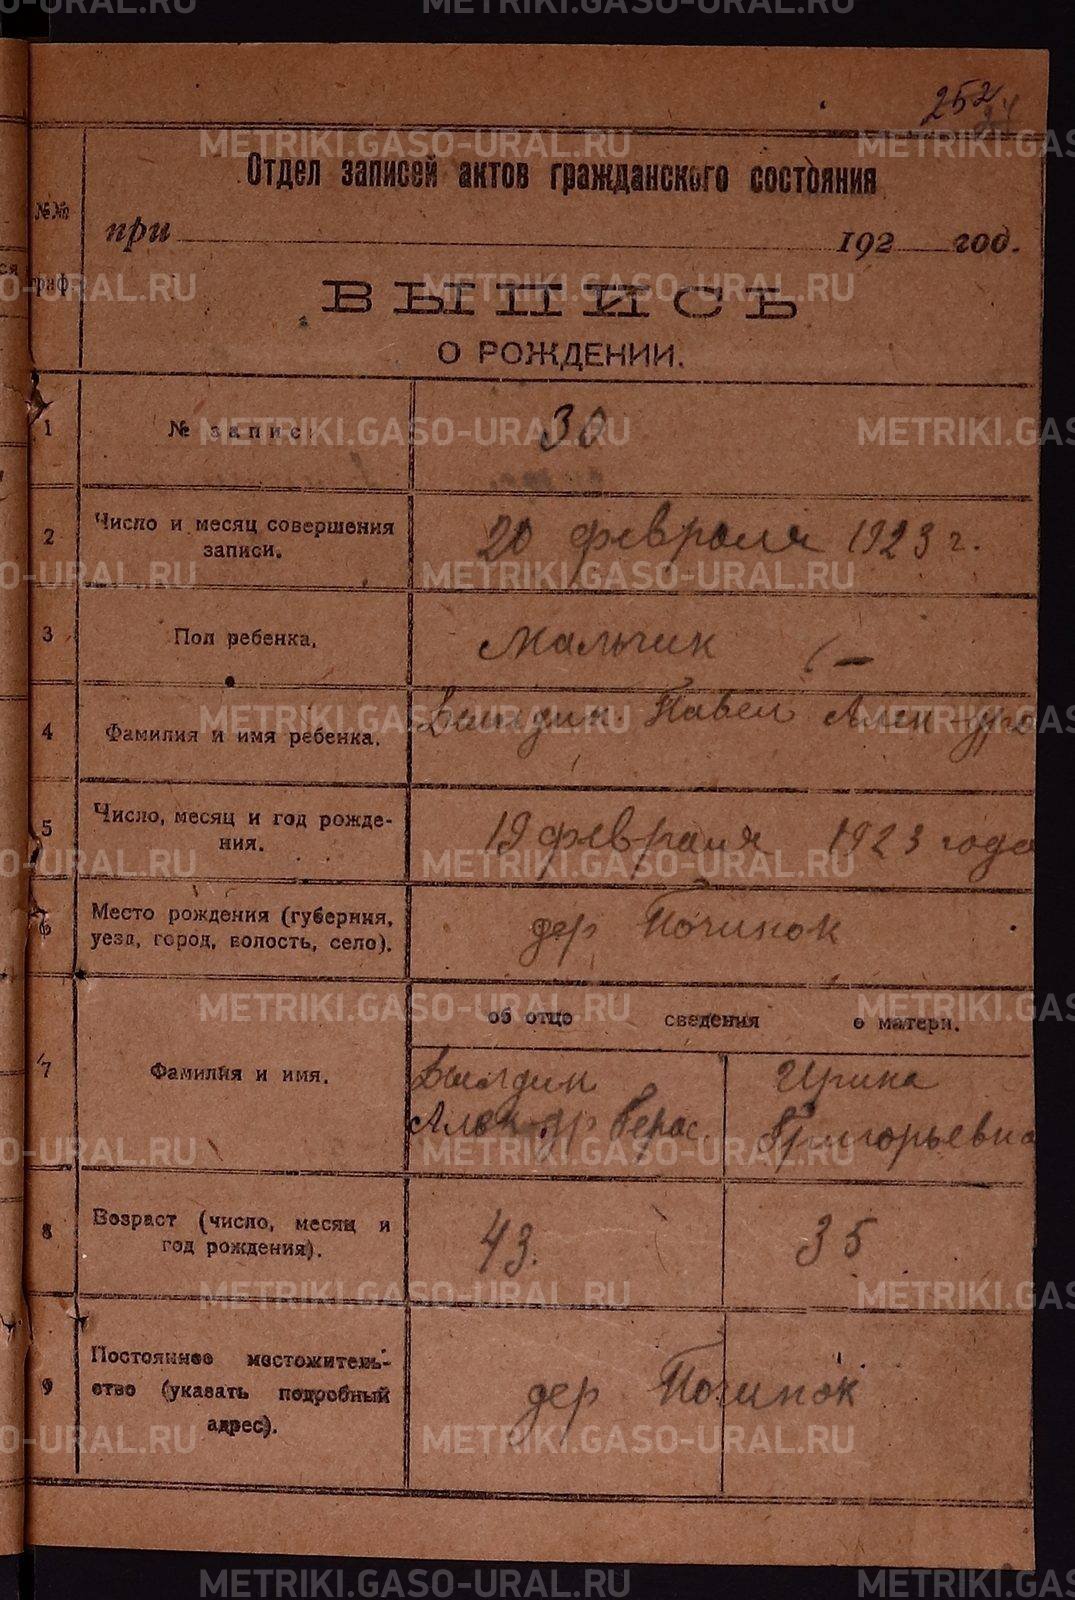 252
24
Отдел записей актов гражданского состояния
№№ граф.
при 192 год.
ВЫПИСЬ
О РОЖДЕНИИ.
1 № запис. 30
2 Число и месяц совершения записи. 20 февраля 1923 г.
3 Пол ребенка. Мальчик
4 Фамилия и имя ребенка. Павел Алек-дро
5 Число, месяц и год рожде-
ния. 19 февраля 1923 года
6 Место рождения (губерния,
уезд, город, волость, село). дер Починок
об отце сведения о матери.
7 Фамилия и имя. Ирина
Алек-др Герас. Григорьевна
8 Возраст (число, месяц и
год рождения). 43. 35
9 Постоянное местожитель-
ство (указать подробный
адрес). дер Починок
METRIKI.GASO-URAL.RU